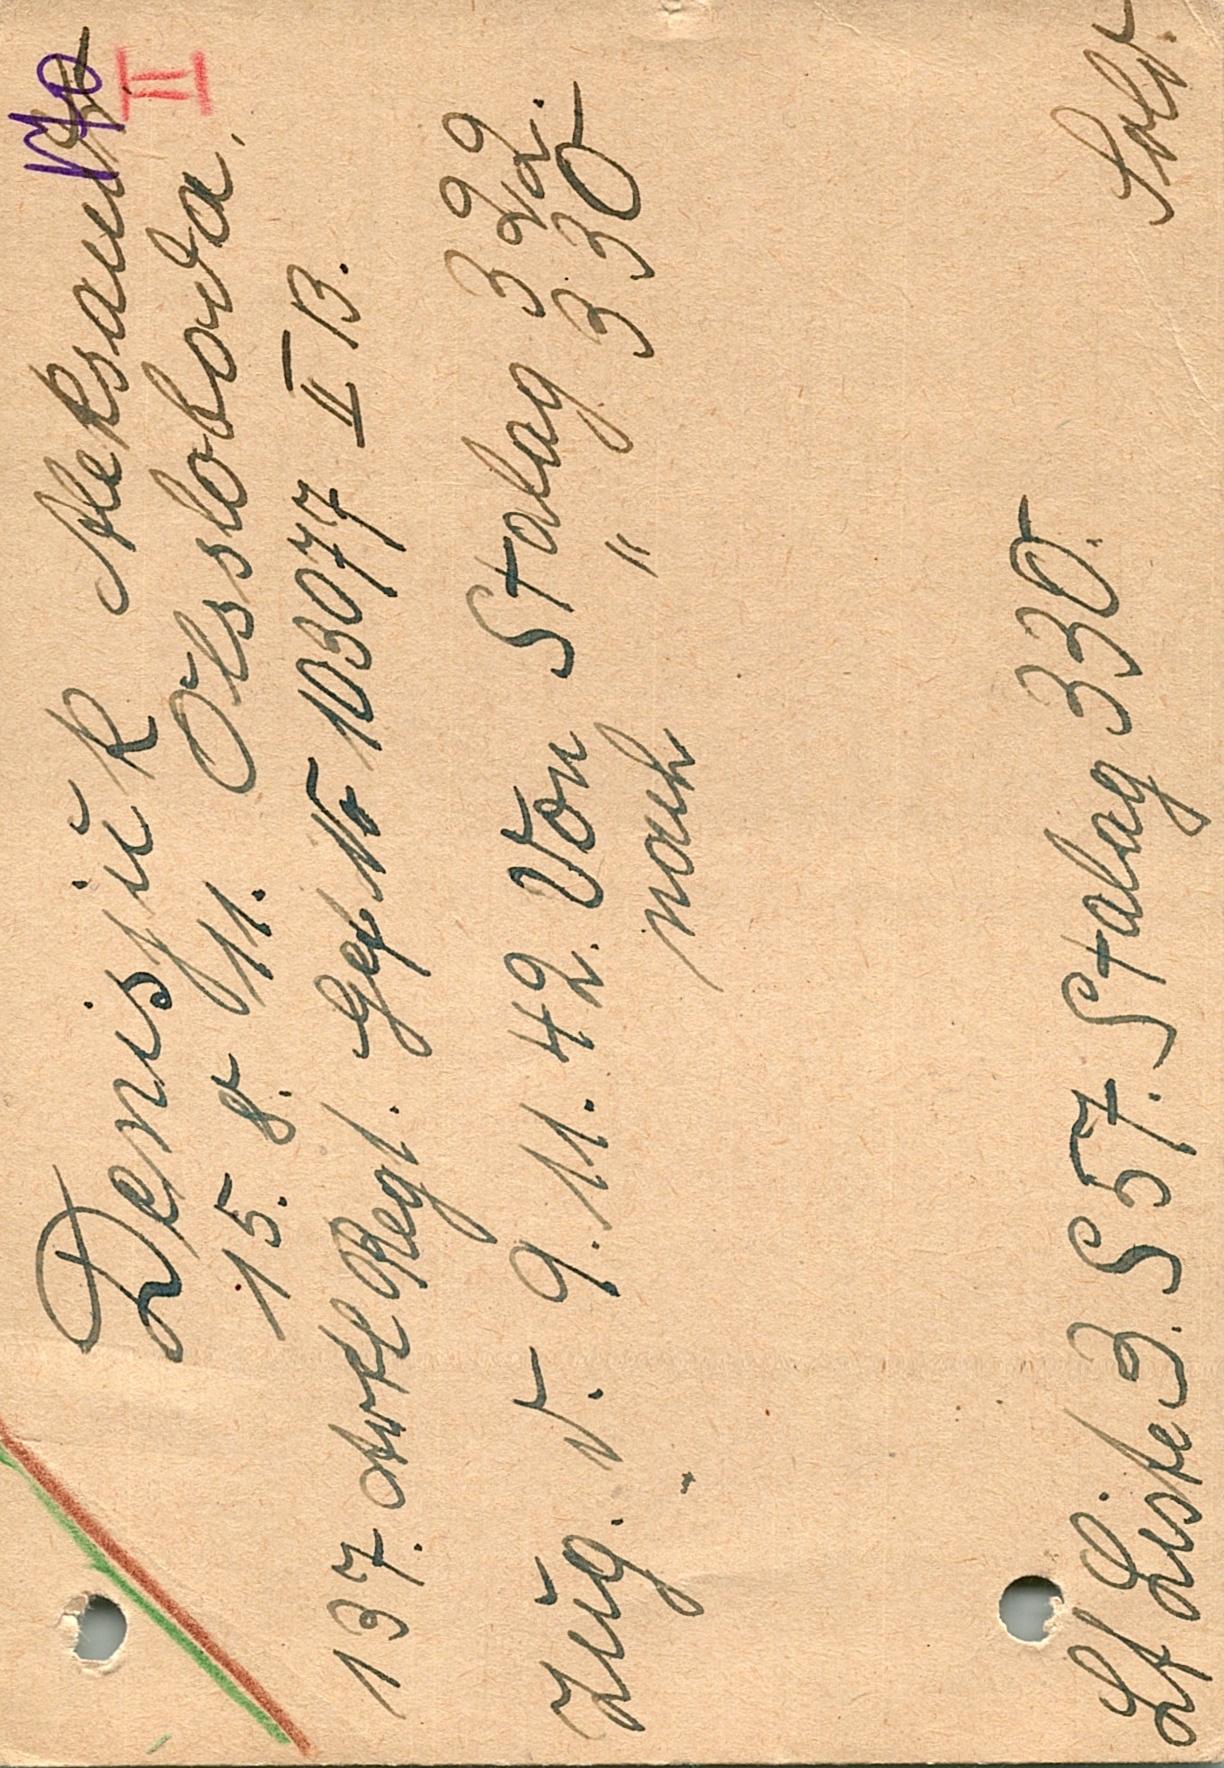 Denisjuk Aleksander
II
15. 8. 11. Olssloboda.
137. Artl Regt. Gef Nr 103077 II B.
Zug. v. 9. 11. 42. Von Stalag 322.
nach " 330
Lf Liste 3. S 57. Stalag 330. Sold.